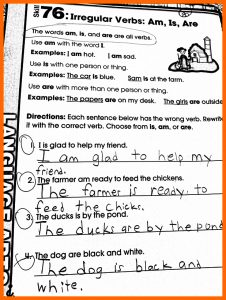 Skill 76: Irregular Verbs: Am, Is, Are
The words am, is, and are are all verbs.
Use am with the word I.
Examples: I am hot. I am sad.
Use is with one person or thing.
Examples: The car is blue. Sam is at the farm.
Use are with more than one person or thing.
Examples: The papers are on my desk. The girls are outside
Directions: Each sentence below has the wrong verb. Rewrite
it with the correct verb. Choose from is, am, or are.
1. I is glad to help my friend.
I am glad to help my
friend.
2. The farmer am ready to feed the chickens.
The farmer is ready. to
feed the chicks.
3. The ducks is by the pond.
The ducks are by the pond
4. The dog are black and white.
The dog is black and
white.